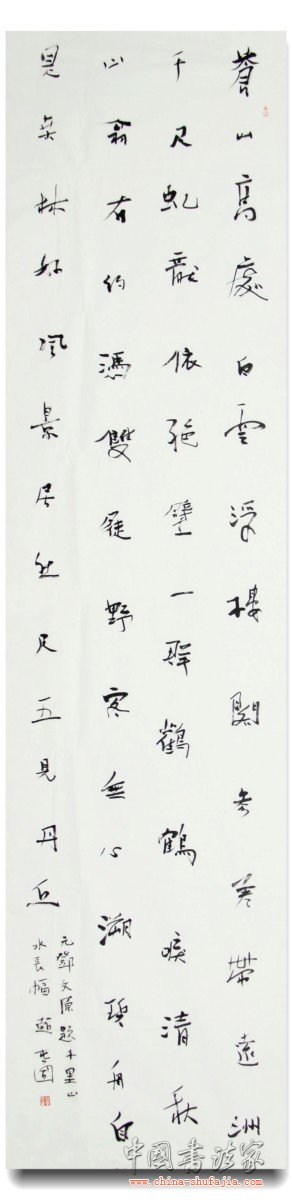 蒼山高處白雲浮樓閣參差帶遠洲
千尺虬龍依絕壁一群鸛鶴唳清秋
山翁有約憑雙屐野客無心溯碧舟自
是桑林好風景居然尺五見丹丘
元鄧文原題千里山
水長幅 趙國
中国书法家
www.china-shufajia.com